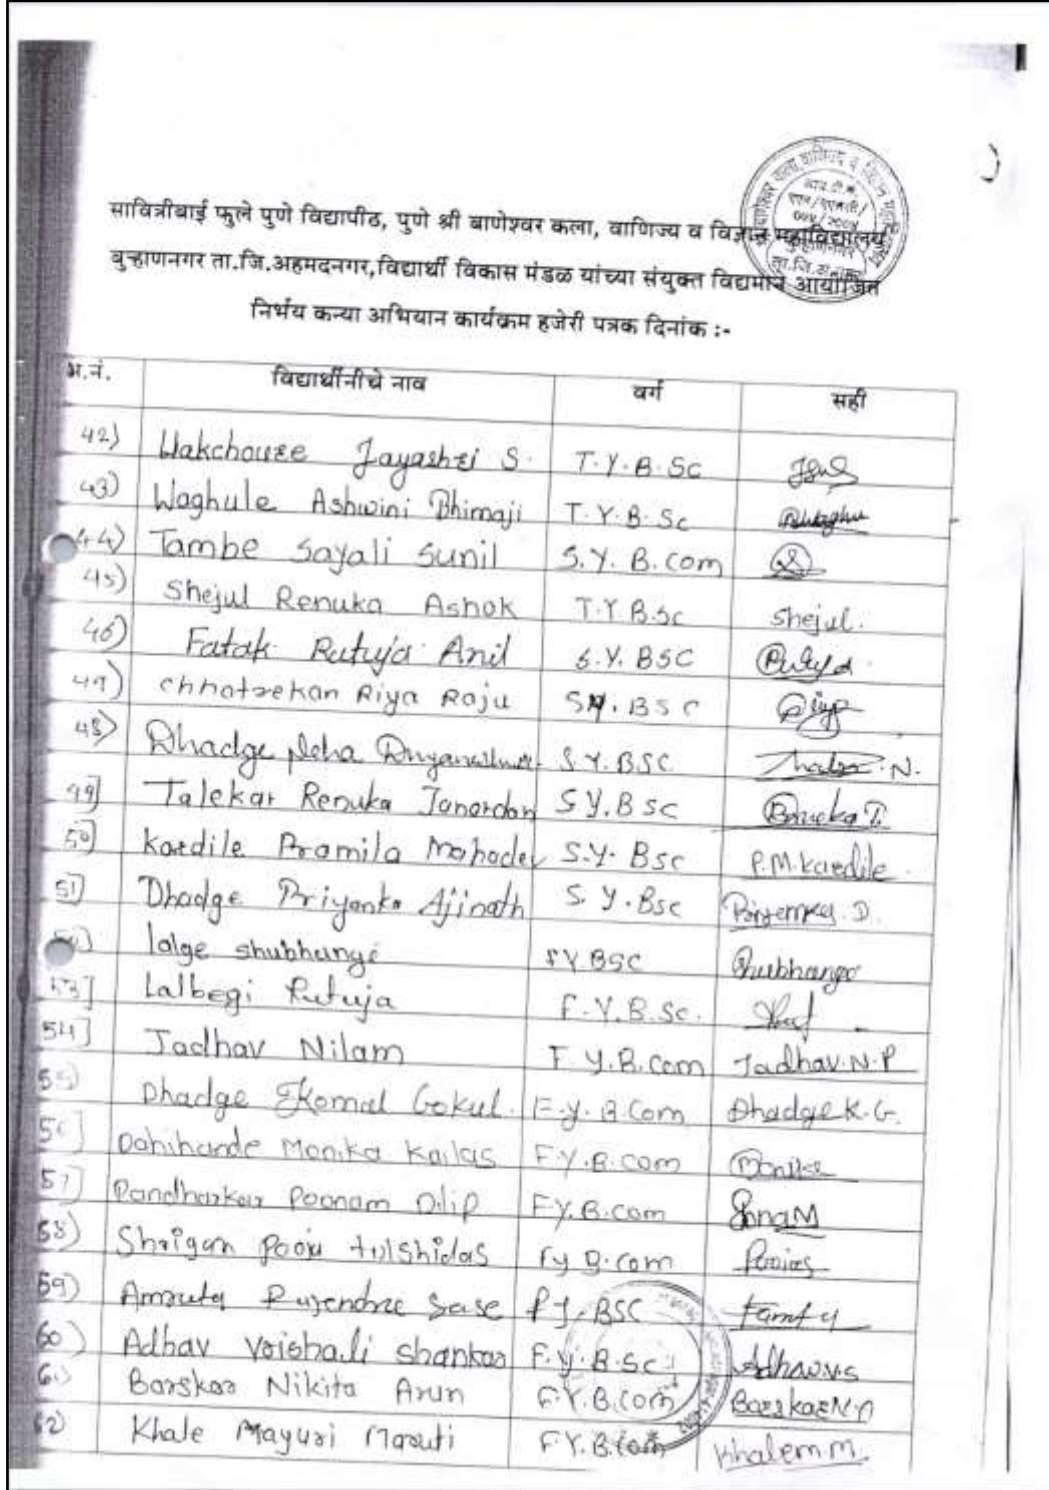 सावित्रीबाई फुले पुणे विद्यापीठ, पुणे श्री बाणेश्वर कला, वाणिज्य व विज्ञान महाविद्यालय
बुऱ्हाणनगर ता.जि.अहमदनगर,विद्यार्थी विकास मंडळ यांच्या संयुक्त विद्यमाने आयोजित
निर्भय कन्या अभियान कार्यक्रम हजेरी पत्रक दिनांक :-
अ.नं. विद्यार्थीनीचे नाव वर्ग सही
42) Wakchoure Jayashri S. T.Y.B.Sc
43) Waghule Ashwini Bhimaji T.Y.B.Sc
44) Tambe Sayali Sunil S.Y. B.Com
45) Shejul Renuka Ashok T.Y.B.Sc Shejul.
46) Fatak Rutuja Anil S.Y. BSC
47) Chhatrekar Riya Raju S.Y.BSC
48) Dhadge Neha Dnyaneshwar S.Y.BSC
49] Talekar Renuka Janardan S.Y.BSC Renuka T.
50] Kardile Pramila Mahadev S.Y. BSC P.M.Kardile
51] Dhadge Priyanka Ajinath S.Y.BSC
lalge shubhangi SY BSC Shubhangi
53] Lalbegi Rutuja F.Y.B.Sc.
54] Jadhav Nilam F.Y.B.Com Jadhav.N.P
55) Dhadge Komal Gokul. F.Y.B.Com Dhadge K.G.
56] Dahihande Monika Kailas F.Y.B.Com Monika
57] Pandharkar Poonam Dilip F.Y.B.Com
58) Shrigan Pooja tulshidas Fy B.Com
59) Amruta Rajendra Sase F.Y.BSC
60) Adhav Vaishali Shankar F.Y.B.Sc Adhav.V.S
61) Barskar Nikita Arun F.Y.B.Com Barskar N.A
62) Khale Mayuri Maruti F.Y.B.Com Khale m.m.